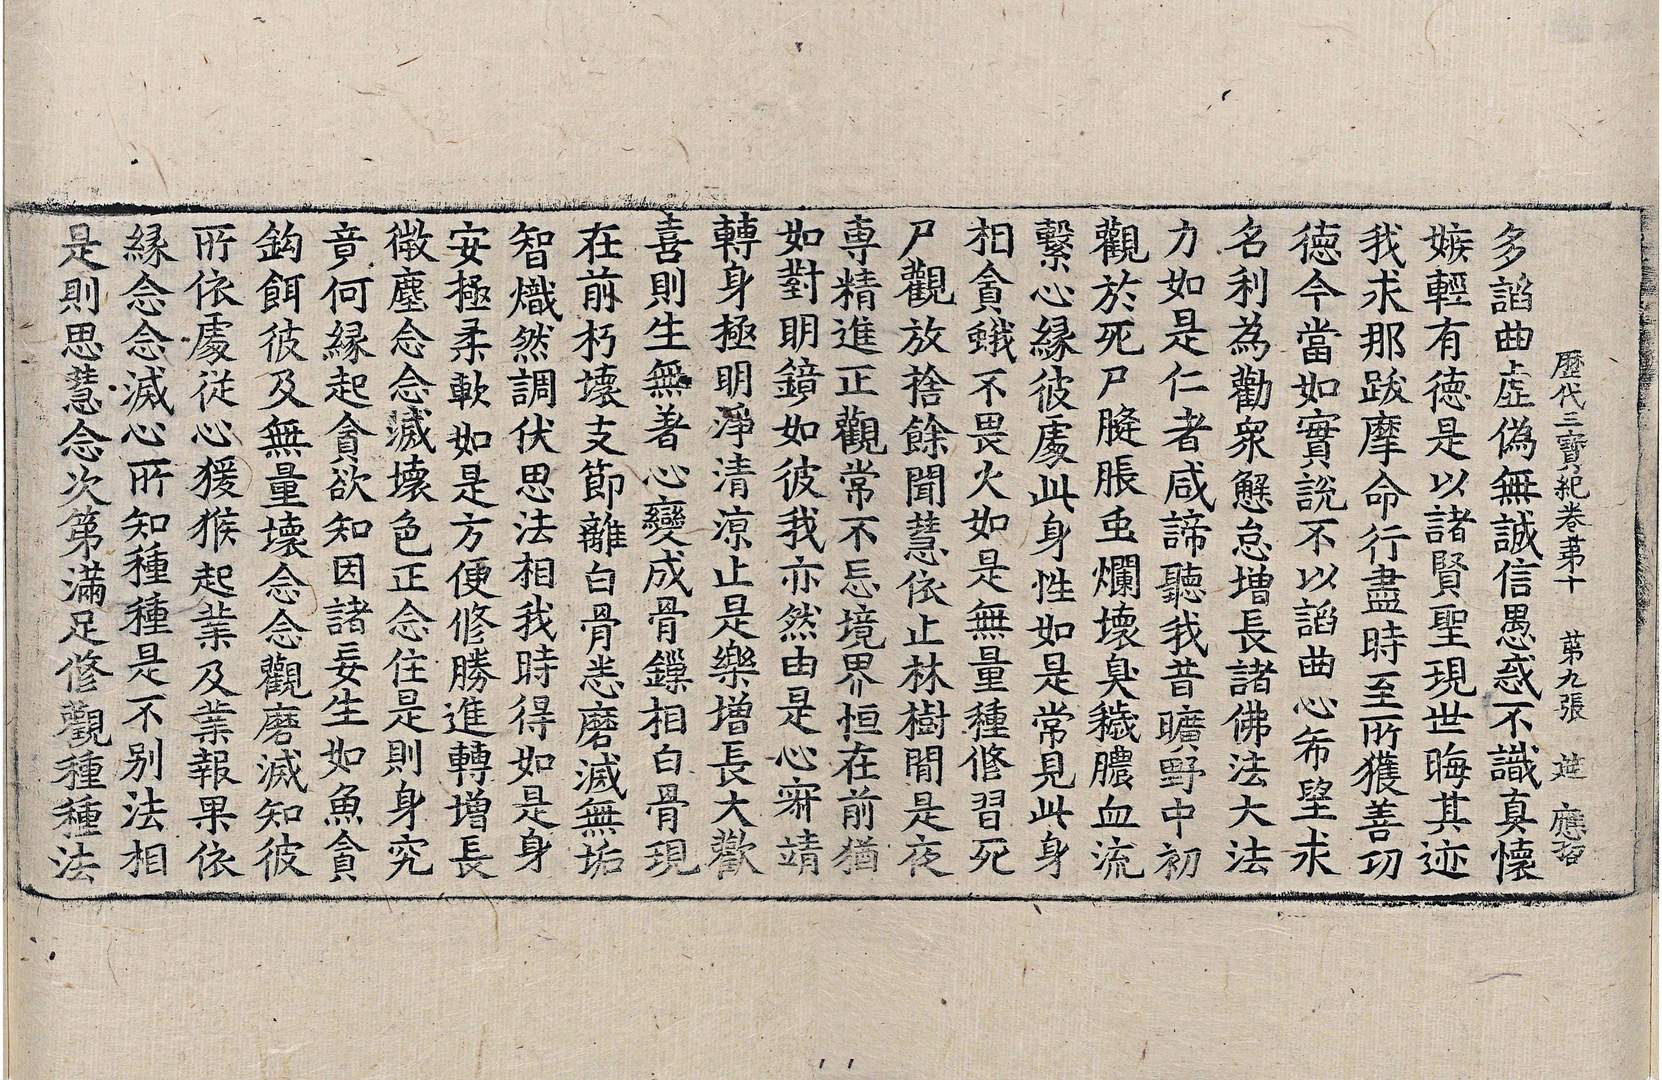 歷代三寶紀卷苐十 苐九張 㢟 應招
多諂曲虛偽無誠信愚惑不識真懷
嫉輕有德是以諸賢聖現世晦其迹
我求那跋摩命行盡時至所獲善㓛
德今當如實說不以諂曲心希望求
名利為勸衆懈怠增長諸佛法大法
力如是仁者咸諦聽我昔曠野中初
觀於死尸膖脹虫爛壞臭穢膿血流
繫心緣彼處此身性如是常見此身
相貪蛾不畏火如是無量種修習死
尸觀放捨餘聞慧依止林樹閒是夜
專精進正觀常不忘境界恒在前猶
如對明鏡如彼我亦然由是心寂靖
轉身極明淨清涼止是樂增長大歡
喜則生無著心變成骨鏁相白骨現
在前朽壞支節離白骨悉磨滅無垢
智熾然調伏思法相我時得如是身
安極柔軟如是方便修勝進轉增長
微塵念念滅壞色正念住是則身究
竟何緣起貪欲知因諸妄生如魚貪
鈎餌彼及無量壞念念觀磨滅知彼
所依處從心猨猴起業及業報果依
緣念念滅心所知種種是不別法相
是則思慧念次第滿足修觀種種法